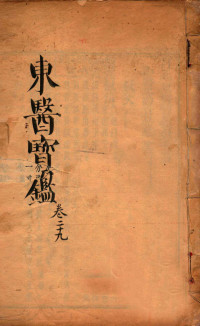 東醫寶鑑
卷之九